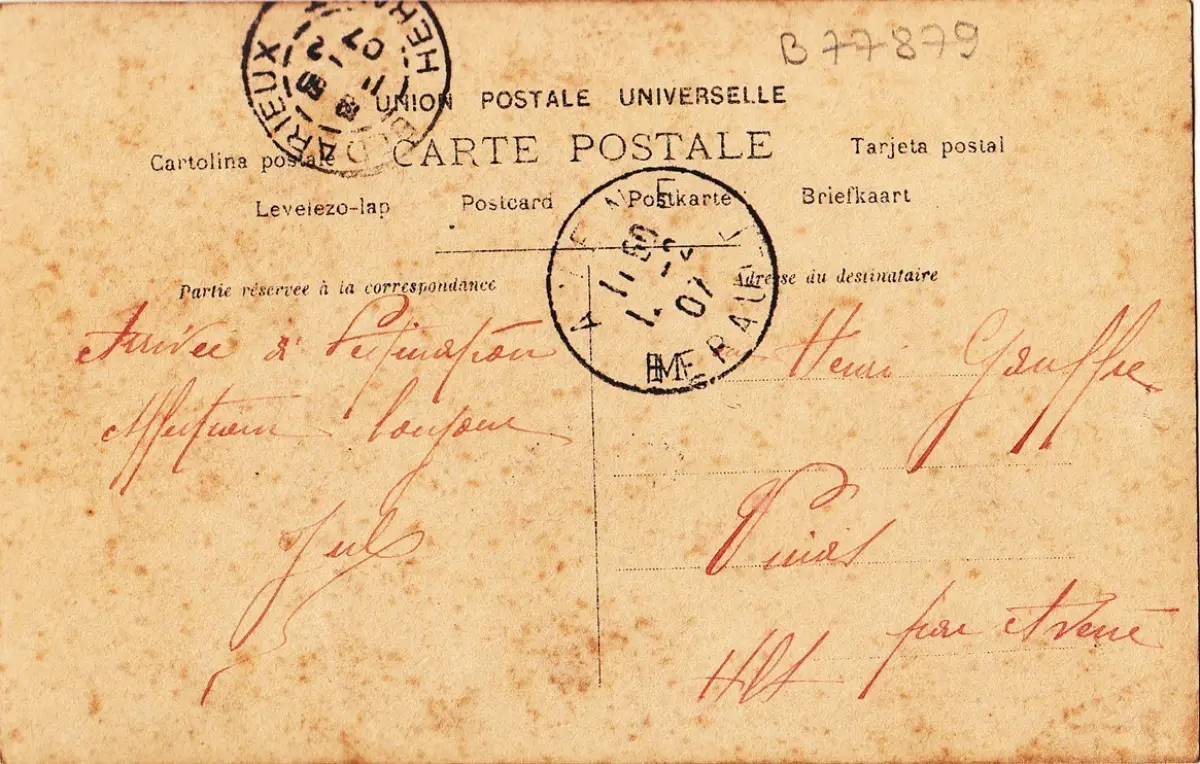 B 77879
UNION POSTALE UNIVERSELLE
CARTE POSTALE
Cartolina postale
Tarjeta postal
Levelezo-lap Postcard Postkarte Briefkaart
Partie réservée à la correspondance
Adresse du destinataire
AVENE
11 50
1 - 2
07
HERAULT
Arrivée à destination
Affectueux bonjour
Henri Gauffre
Vinas
par Avène
Hlt